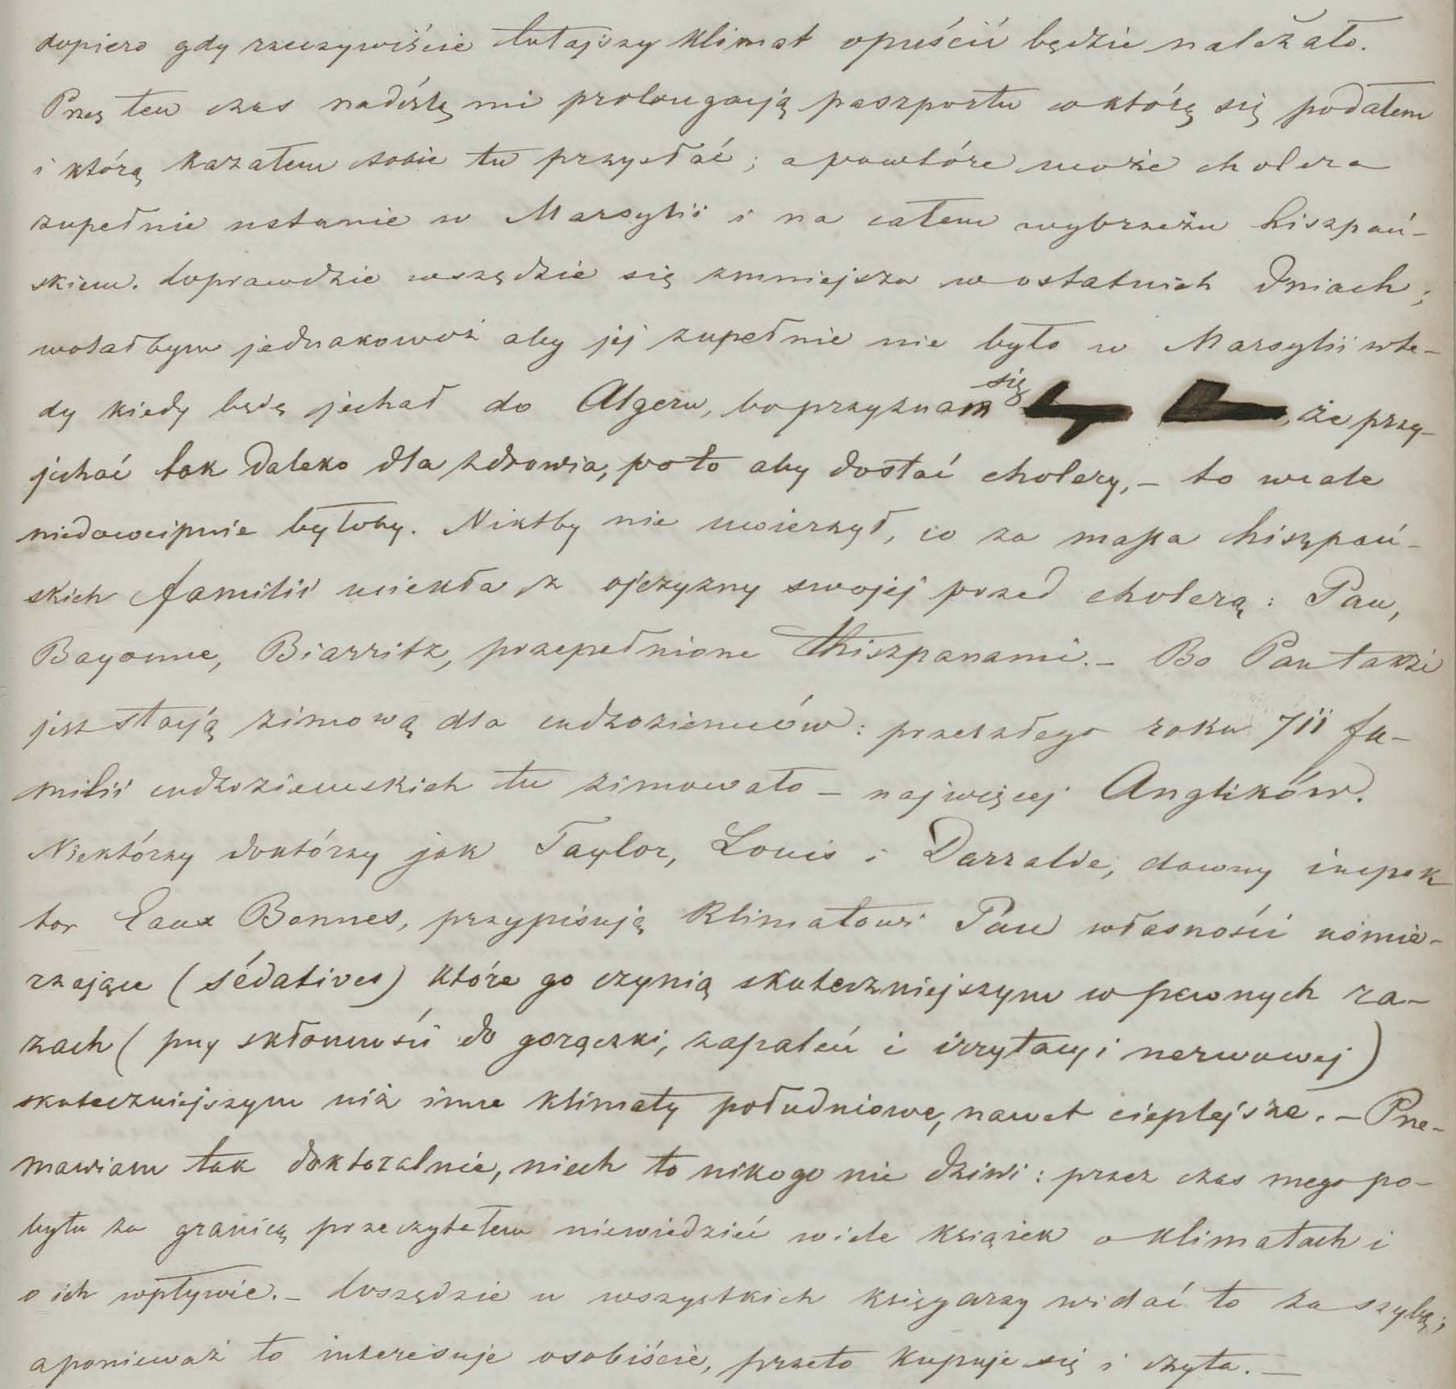 dopiero gdy rzeczywiście tutejszy klimat opuścić będzie należało.
Przez ten czas nadeślą mi prolongacją paszportu o którą się podałem
i którą kazałem sobie tu przysłać; a powtóre może cholera
zupełnie ustanie w Marsylii i na całem wybrzeżu hiszpań-
skiem. Wprawdzie wszędzie się zmniejsza w ostatnich dniach;
wolałbym jednakowoż aby jej zupełnie nie było w Marsylii wte-
dy kiedy będę jechał do Algeru, bo przyznam się, że przy-
jechać tak daleko dla zdrowia, po to aby dostać cholery, – to wcale
niedowcipnie byłoby. Niktby nie uwierzył, co za massa hiszpań-
skich familii uciekła z ojczyzny swojej przed cholerą: Pau,
Bayonne, Biarritz, przepełnione Hiszpanami. – Bo Pau także
jest stacją zimową dla cudzoziemców: przeszłego roku 711 fa-
milii cudzoziemskich tu zimowało – najwięcej Anglików.
Niektórzy doktórzy jak Taylor, Louis i Darralde, dawny inspek
tor Eaux Bonnes, przypisują klimatowi Pau własności uśmie-
rzające (sédatives) które go czynią skuteczniejszym w pewnych ra-
zach (przy skłonności do gorączki, zapaleń i irrytacyi nerwowej)
skuteczniejszym niż inne klimaty południowe, nawet cieplejsze. – Prze-
mawiam tak doktoralnie, niech to nikogo nie dziwi: przez czas mego po-
bytu za granicą przeczytałem niewiedzieć wiele książek o klimatach i
o ich wpływie. – Wszędzie u wszystkich księgarzy widać to za szybą;
a ponieważ to interesuje osobiście, przeto kupuje się i czyta. –